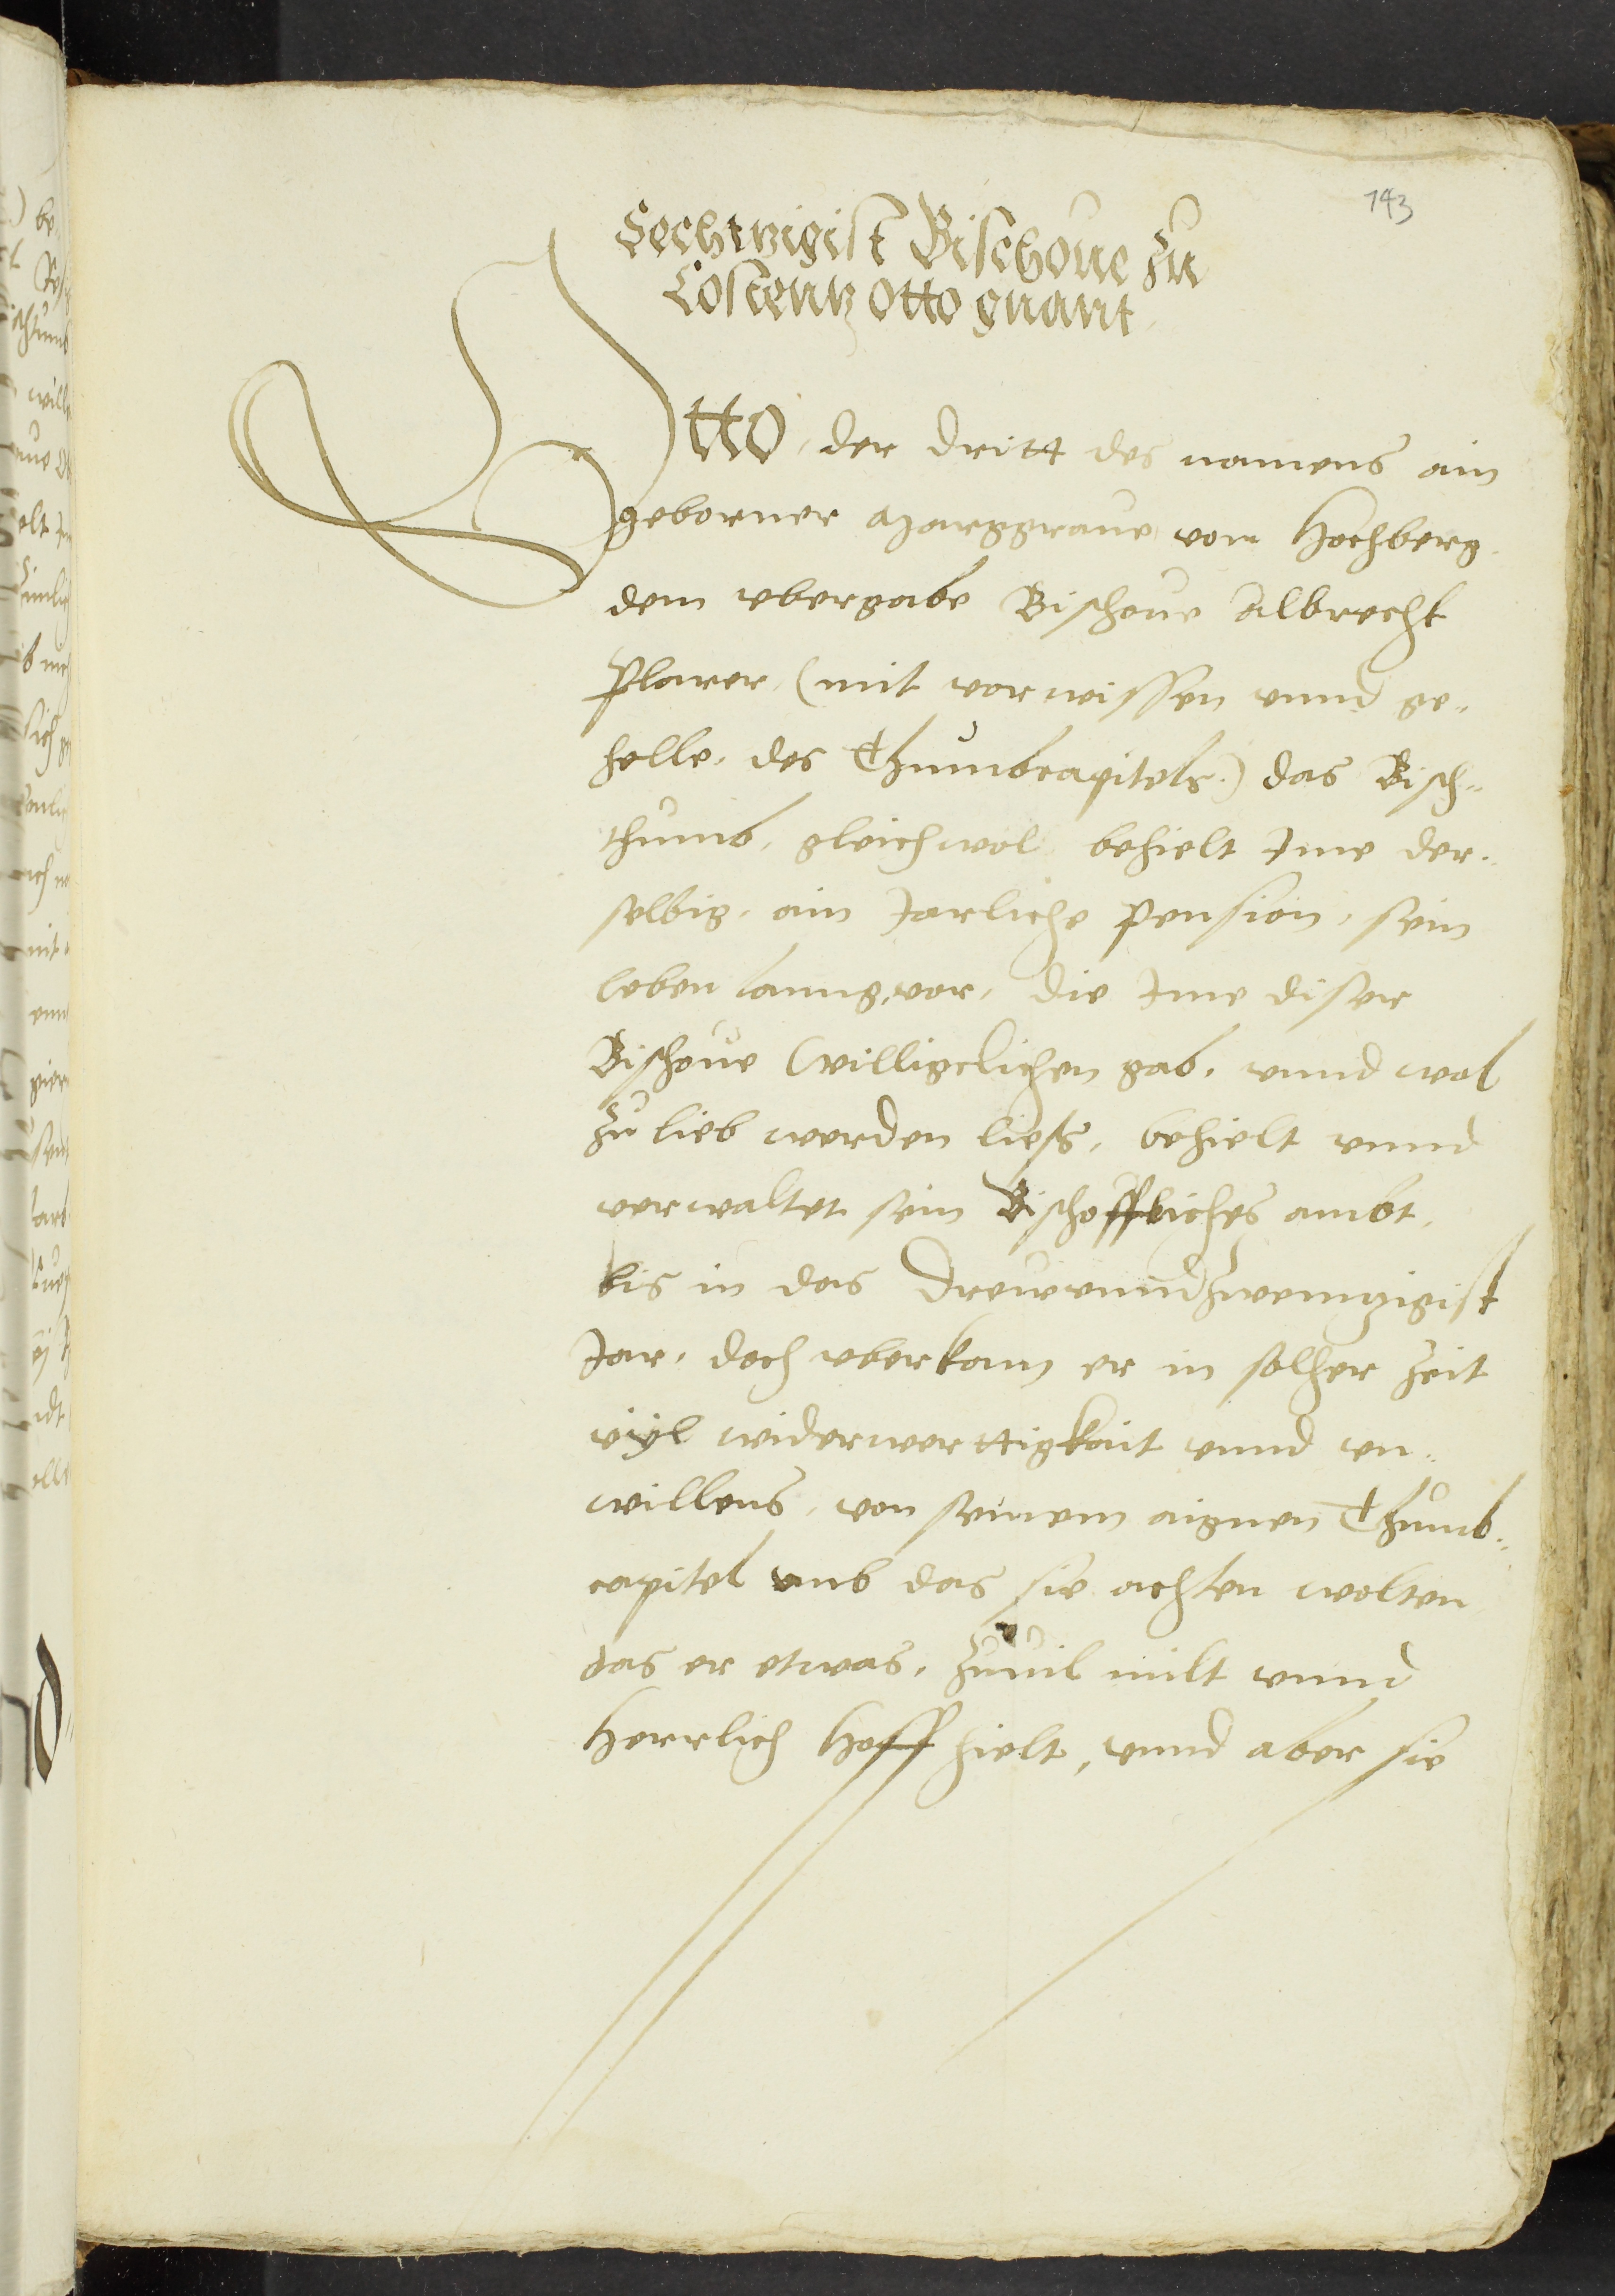 143
Sechtzigist Bischoue Zu
Costentz Otto gnant
Otto, der dritt des namens ain
geborner Marggraue vom Hochberg
dem vbergabe Bischoue Albrecht
Plarer, (mit vorwissen vnnd ge„
helle, des Thumbcapitels.) das Bisch„
thumb, gleichwol behielt Ime der„
selbig, ain Jarliche pension, sein
leben lanng, vor, die Ime diser
Bischoue willigclichen gab, vnnd wol
zu lieb werden liess, behielt vnnd
verwaltet sein Bischoffliches ambt,
bis in das Dreuvunndzwenntzigist
Jar, doch vberkam er in solher Zeit
viyl widerwerttigkait vnnd vn„
willens, von seinem aignen Thumb„
capitel vmb das sie achten wolten
das er etwas, zuuil milt vnnd
Herrlich Hoff hielt, vnnd aber sie